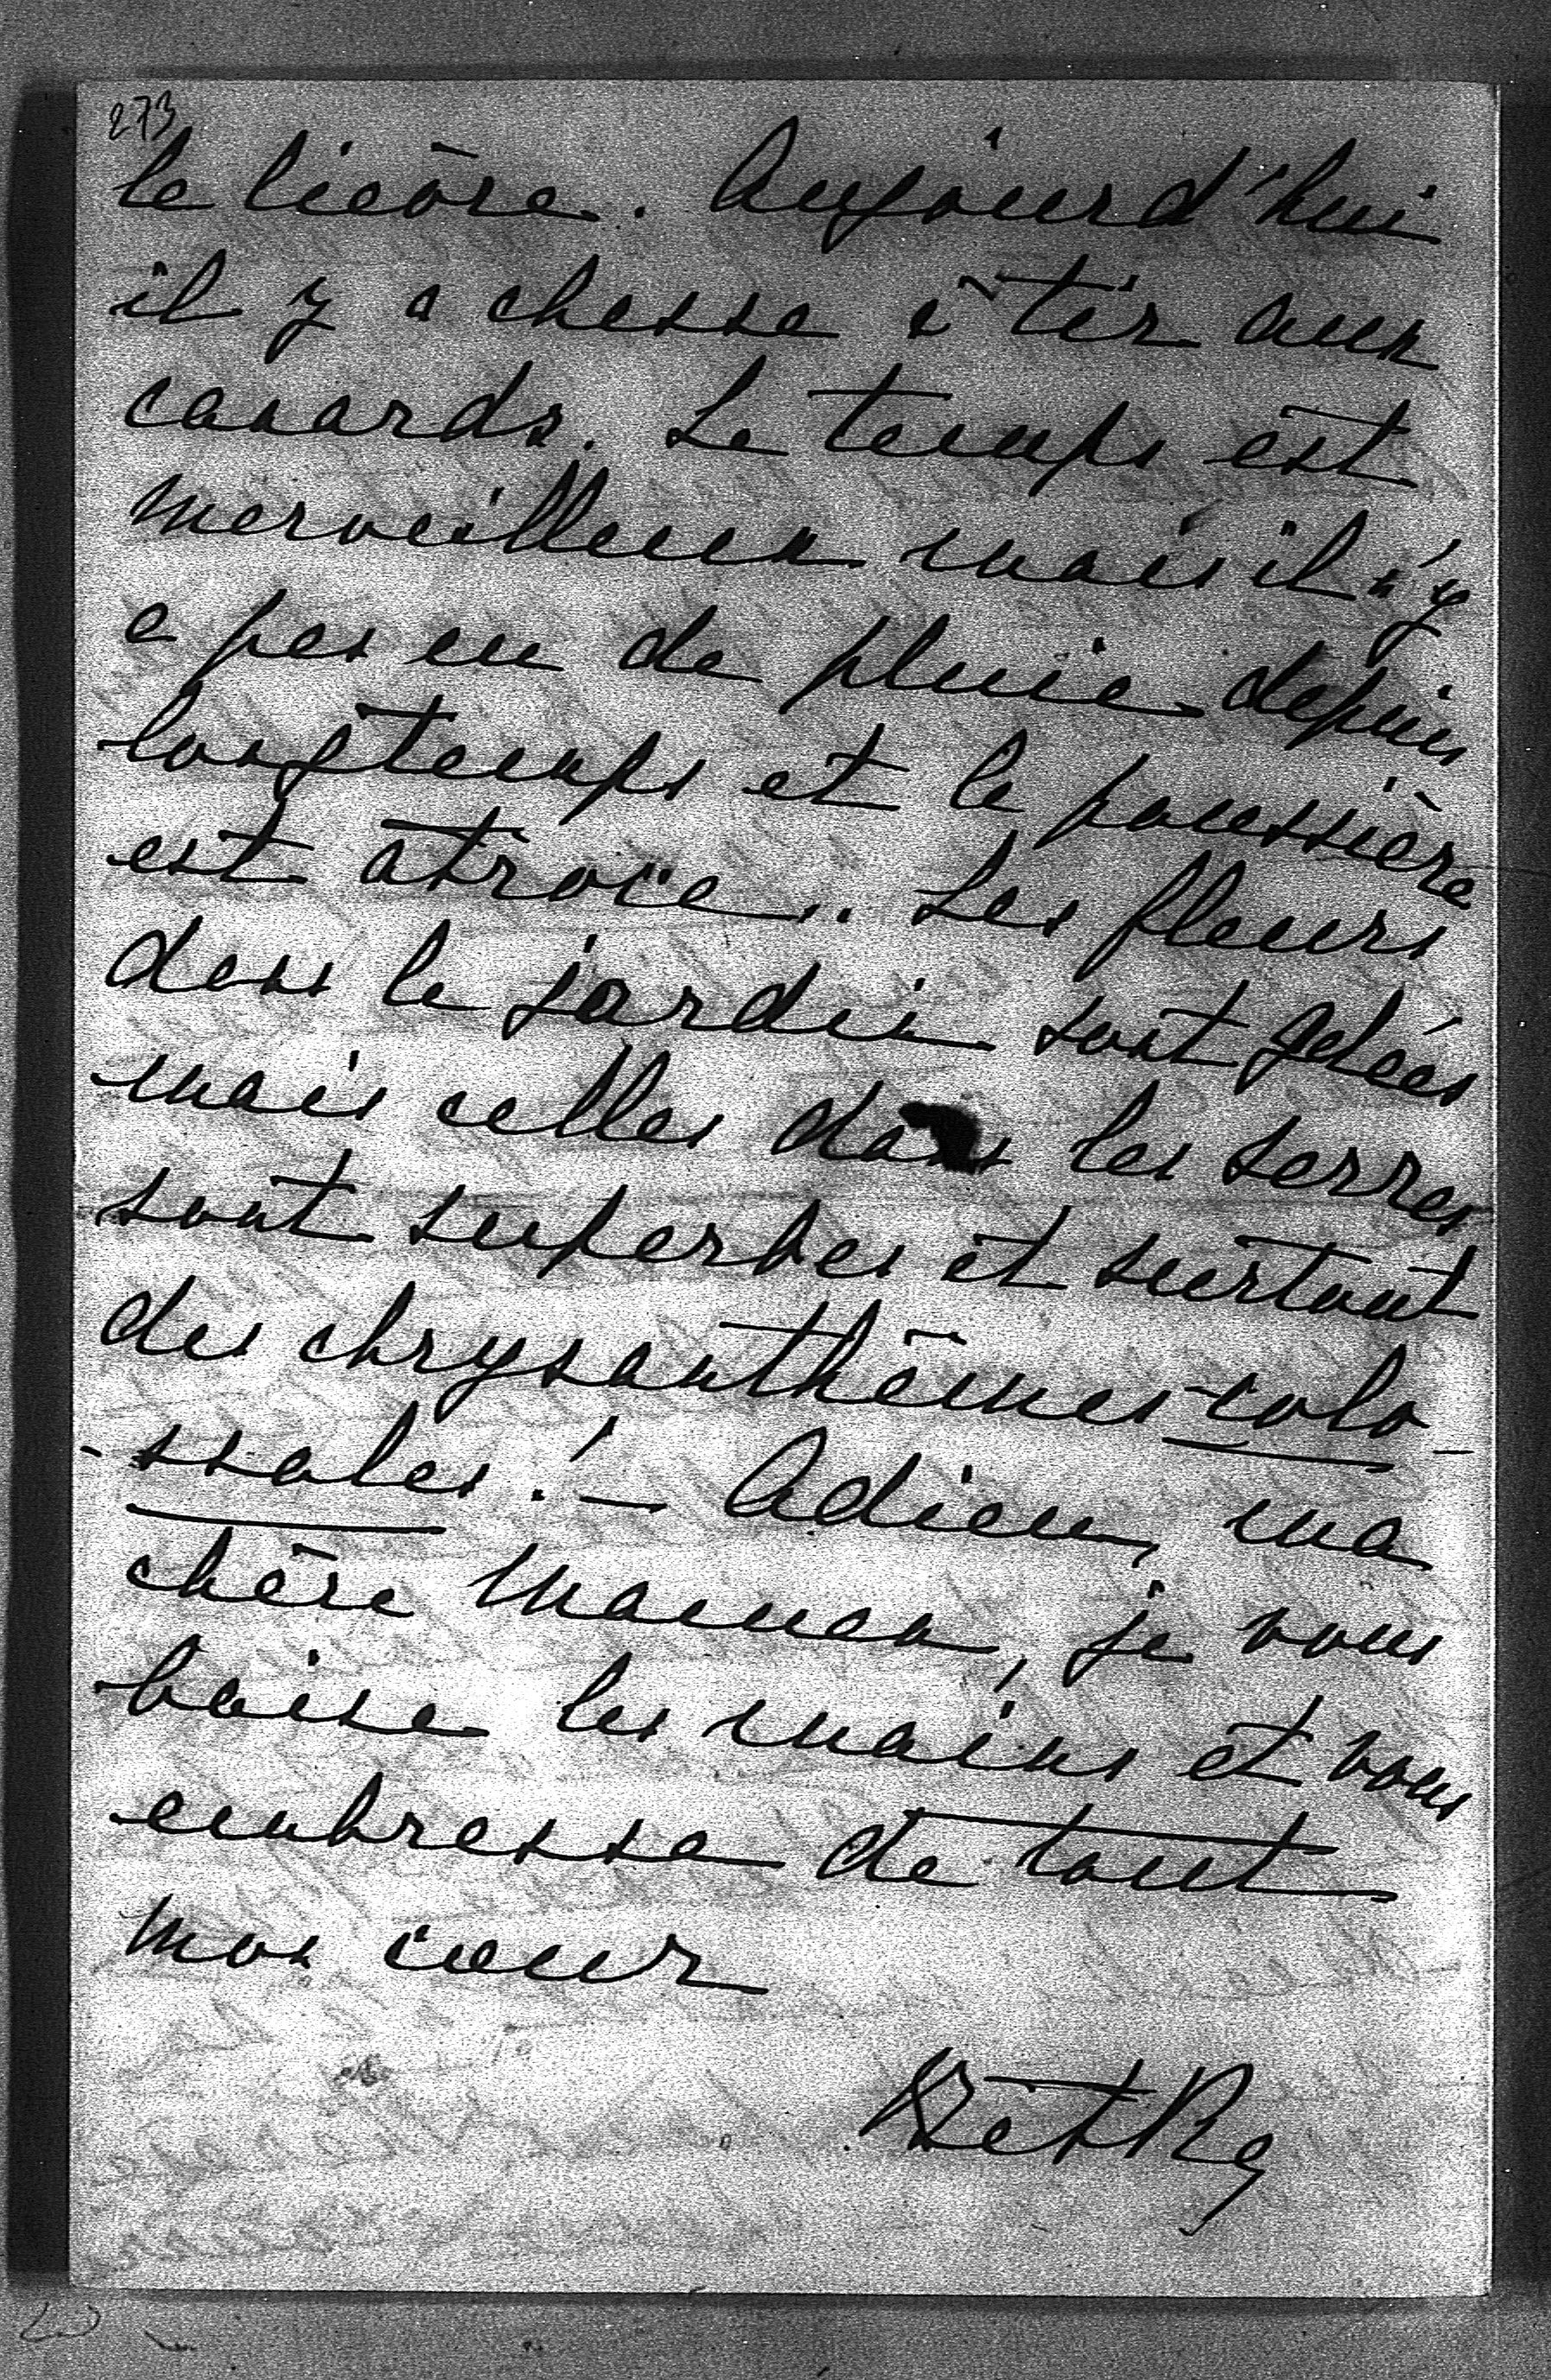 273
le lièvre. Aujourd'hui
il y a chasse à tir aux
canards. Le temps est
merveilleux mais il n'y
a pas eu de pluie depuis
longtemps et la poussière
est atroce. Les fleurs
dans le jardin sont gelées
mais celles dans les serres
sont superbes et surtout
des chrysanthèmes colo-
-ssales! — Adieu, ma
chère Maman, je vous
baise les mains et vous
embrasse de tout
mon cœur